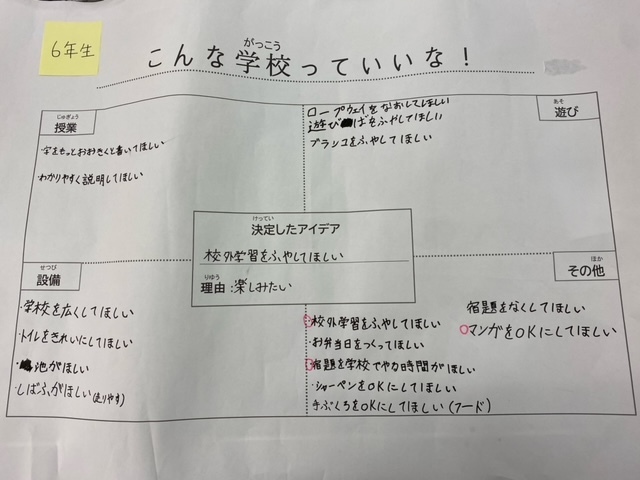 6年生
がっこう
こんな学校っていいな!
じゅぎょう
授業
・字をもっとおおきくと書いてほしい
・わかりやすく説明してほしい
あそ
遊び
ロープウェイをなおしてほしい
遊びばをふやしてほしい
ブランコをふやしてほしい
けってい
決定したアイデア
校外学習をふやしてほしい
りゆう
理由:楽しみたい
せつび
設備
・学校を広くしてほしい
・トイレをきれいにしてほしい
・池がほしい
・しばふがほしい(走りやす)
ほか
その他
校外学習をふやしてほしい
・お弁当日をつくってほしい
宿題を学校でやる時間がほしい
・シャーペンをOKにしてほしい
手ぶくろをOKにしてほしい(フード)
宿題をなくしてほしい
マンガをOKにしてほしい